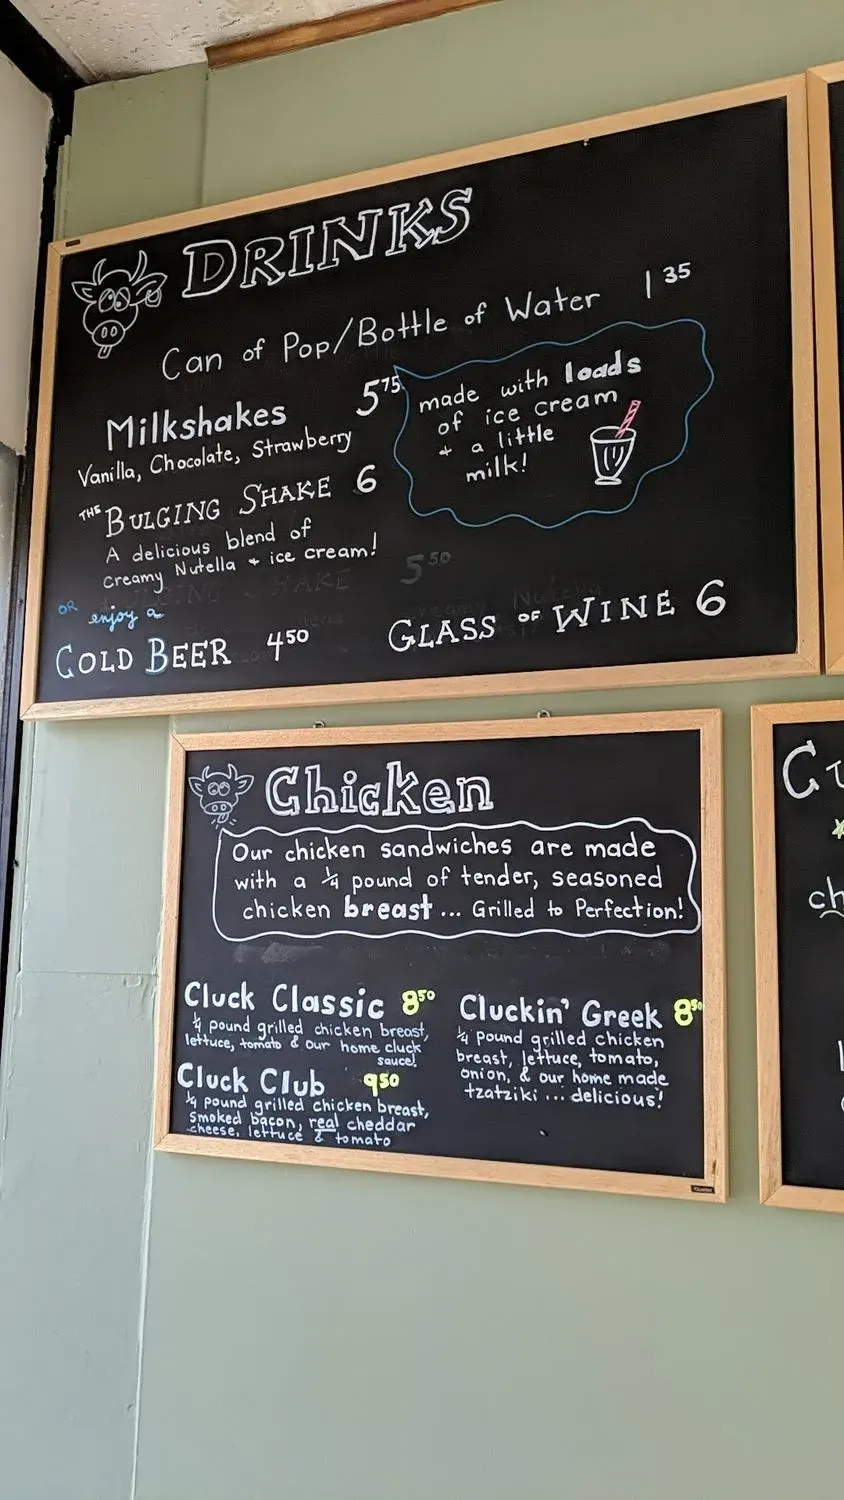 DRINKS
Can of Pop/Bottle of Water 1 35
Milkshakes 5 75
Vanilla, Chocolate, Strawberry
made with loads
of ice cream
+ a little
milk!
THE BULGING SHAKE 6
A delicious blend of
creamy Nutella + ice cream!
5 50
OR enjoy a
COLD BEER 4 50
GLASS OF WINE 6
Chicken
Our chicken sandwiches are made
with a 1/4 pound of tender, seasoned
chicken breast... Grilled to Perfection!
Cluck Classic 8 50
1/4 pound grilled chicken breast,
lettuce, tomato & our home cluck
sauce!
Cluck Club 9 50
1/4 pound grilled chicken breast,
smoked bacon, real cheddar
cheese, lettuce & tomato
Cluckin' Greek 8 50
1/4 pound grilled chicken
breast, lettuce, tomato,
onion, & our home made
tzatziki ... delicious!
ch